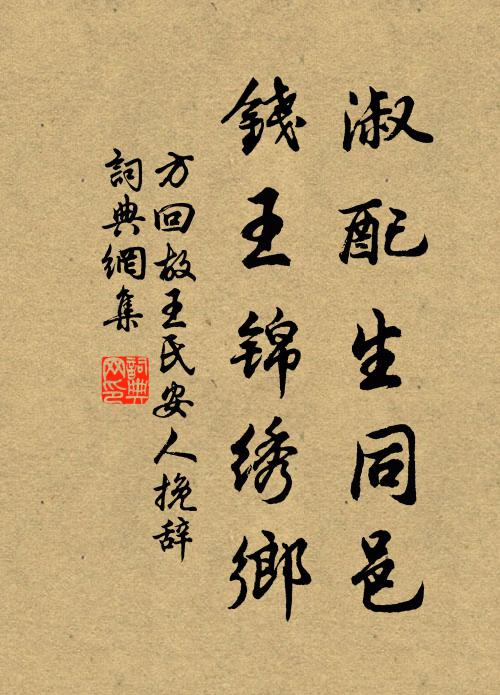 淑配生同邑
錢王锦绣鄉
方回故王氏安人挽辞
詞典網集
詞典网印